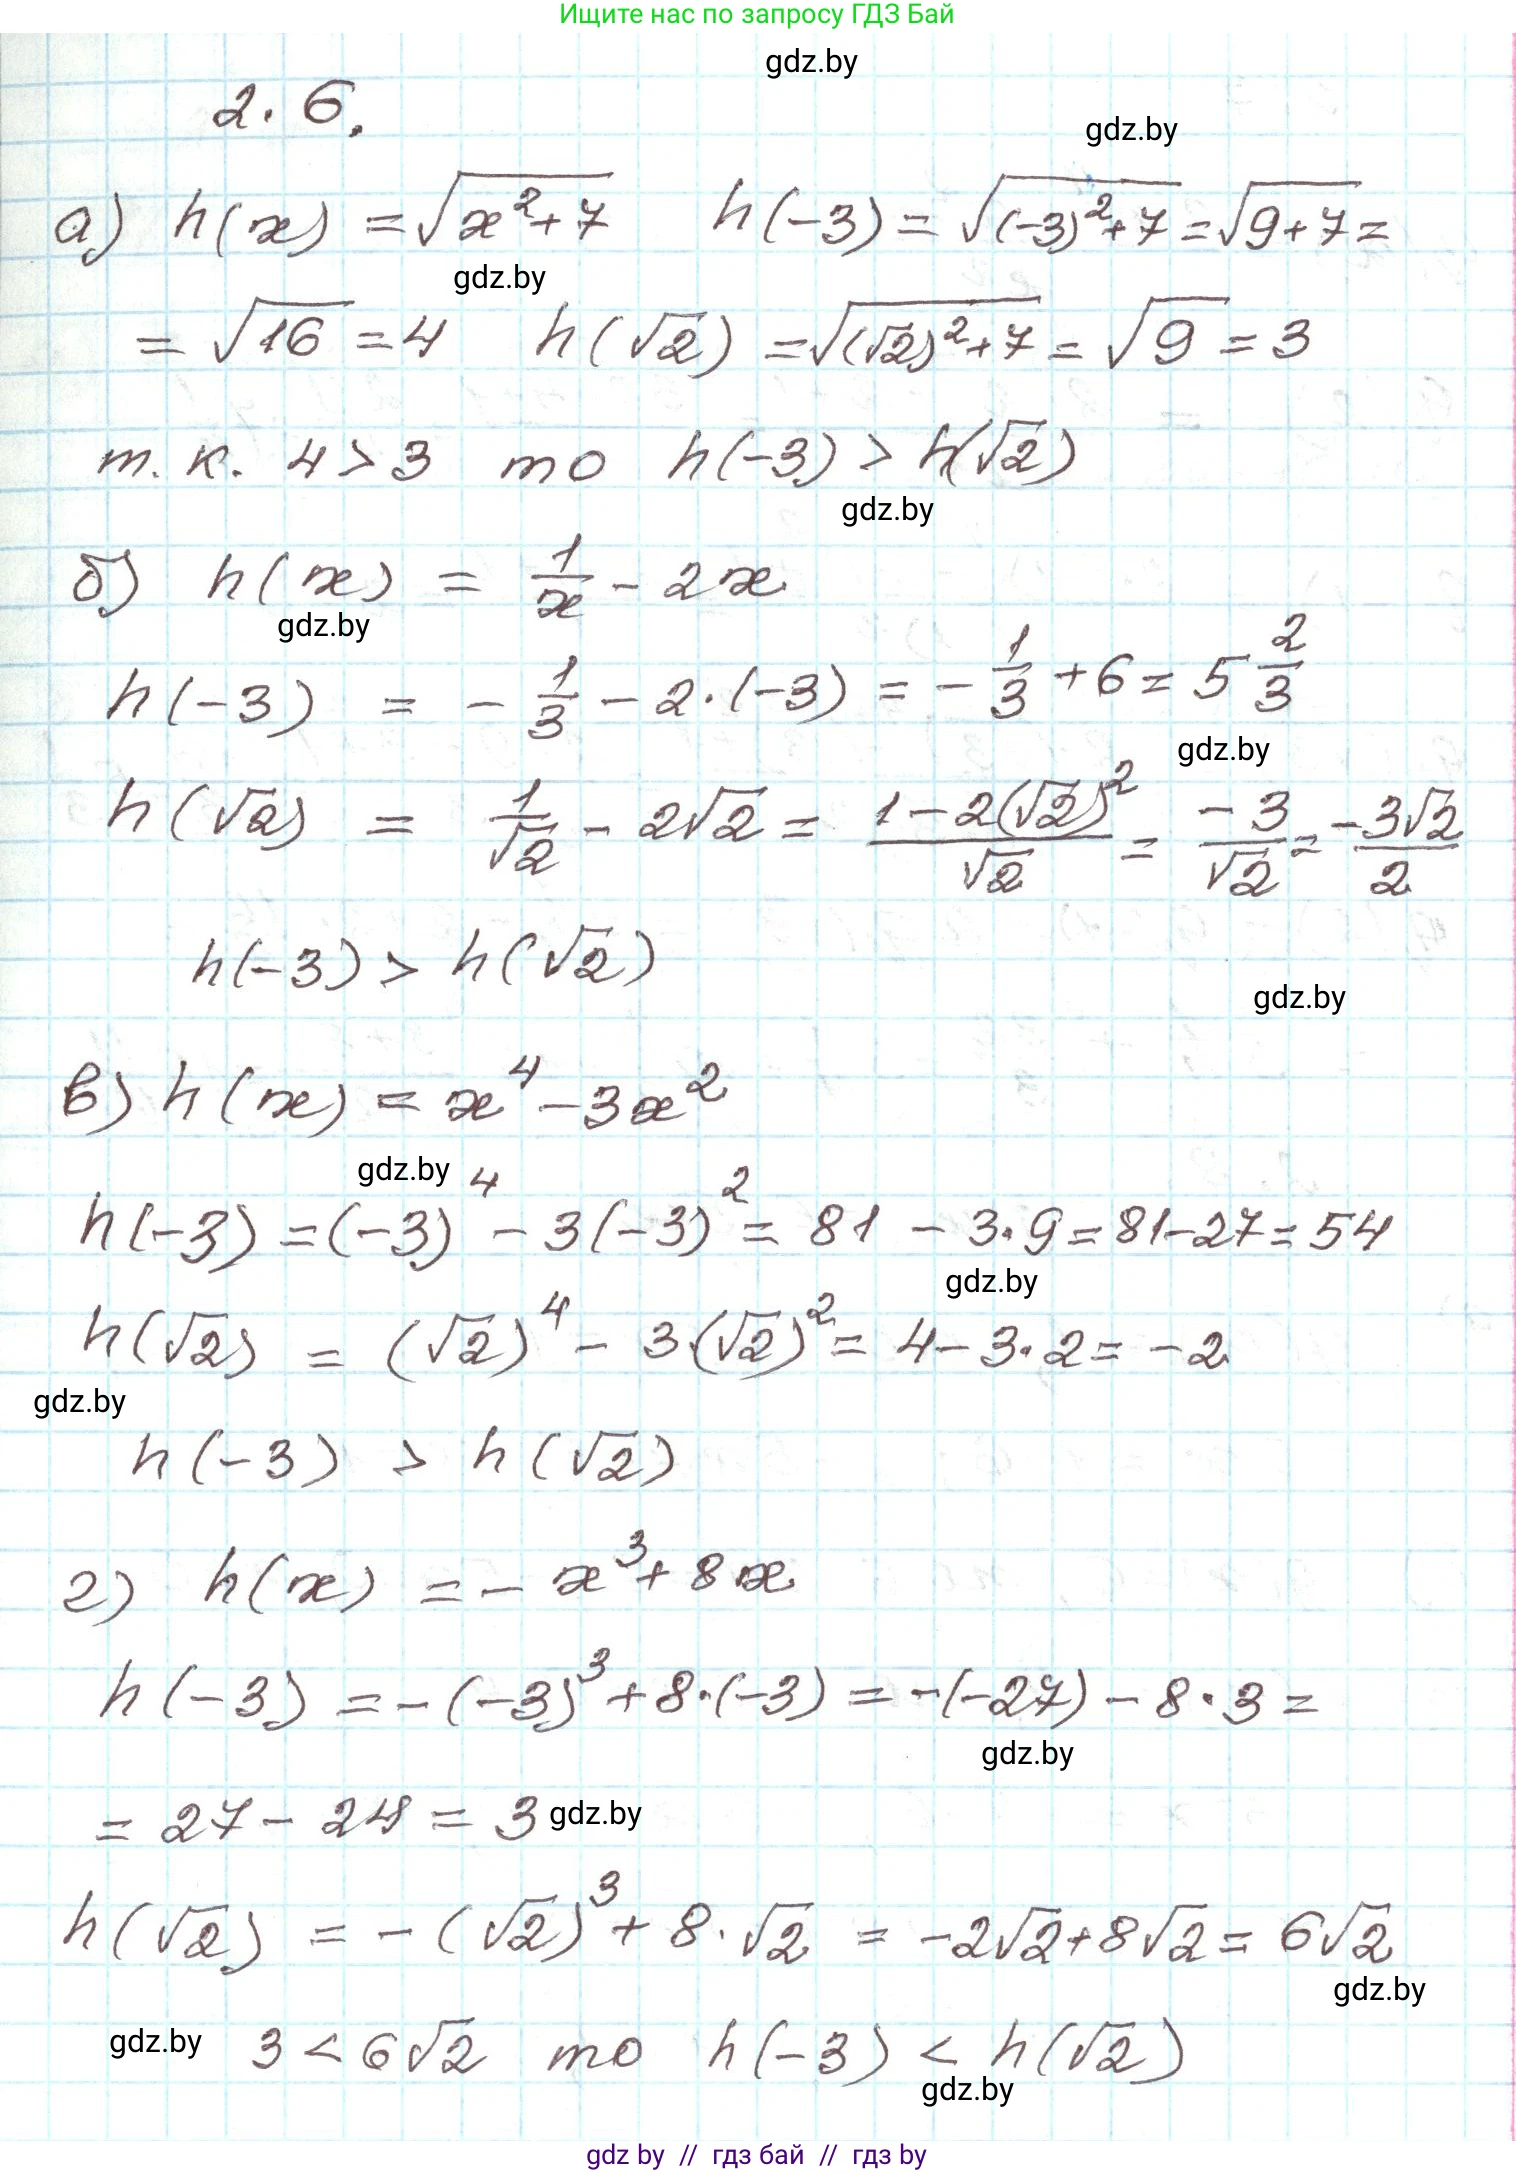 Ищите нас по запросу ГДЗ Бай
gdz.by
2.6.
gdz.by
а) h(x) = √(x²+7)   h(-3) = √((-3)²+7) = √(9+7) =
gdz.by
= √16 = 4   h(√2) = √((√2)²+7) = √9 = 3
т.к. 4 > 3 то h(-3) > h(√2)
gdz.by
б) h(x) = 1/x - 2x
gdz.by
h(-3) = -1/3 - 2·(-3) = -1/3 + 6 = 5 2/3
gdz.by
h(√2) = 1/√2 - 2√2 = (1-2(√2)²)/√2 = -3/√2 = -3√2/2
h(-3) > h(√2)
gdz.by
в) h(x) = x⁴ - 3x²
gdz.by
h(-3) = (-3)⁴ - 3(-3)² = 81 - 3·9 = 81-27 = 54
gdz.by
h(√2) = (√2)⁴ - 3·(√2)² = 4 - 3·2 = -2
gdz.by
h(-3) > h(√2)
г) h(x) = - x³ + 8x
h(-3) = -(-3)³ + 8·(-3) = -(-27) - 8·3 =
gdz.by
= 27 - 24 = 3 gdz.by
h(√2) = -(√2)³ + 8·√2 = -2√2+8√2 = 6√2
gdz.by
gdz.by 3 < 6√2 то h(-3) < h(√2)
gdz.by
gdz by // гдз бай // гдз by